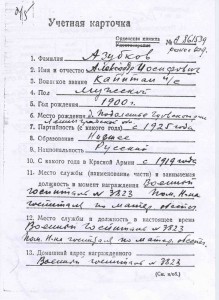 Учетная карточка
Орденская книжка
№
1. Фамилия Азубков
2. Имя и отчество Александр Иосифович
3. Воинское звание Капитан
4. Пол Мужской
5. Год рождения 1900 г.
6. Место рождения
7. Партийность (с какого года) с 1925 года
8. Образование Низшее
9. Национальность Русский
10. С какого года в Красной Армии с 1919 года
11. Место службы (наименование части) и занимаемая
должность в момент награждения Военный
госпиталь № 3823 Пом. Н-ка
госпиталя по матер. обесп.
12. Место службы и должность в настоящее время
Военный госпиталь № 3823
Пом. Н-ка госпиталя по матер. обесп.
13. Домашний адрес награжденного
Военный госпиталь № 3823
(См. на об.)